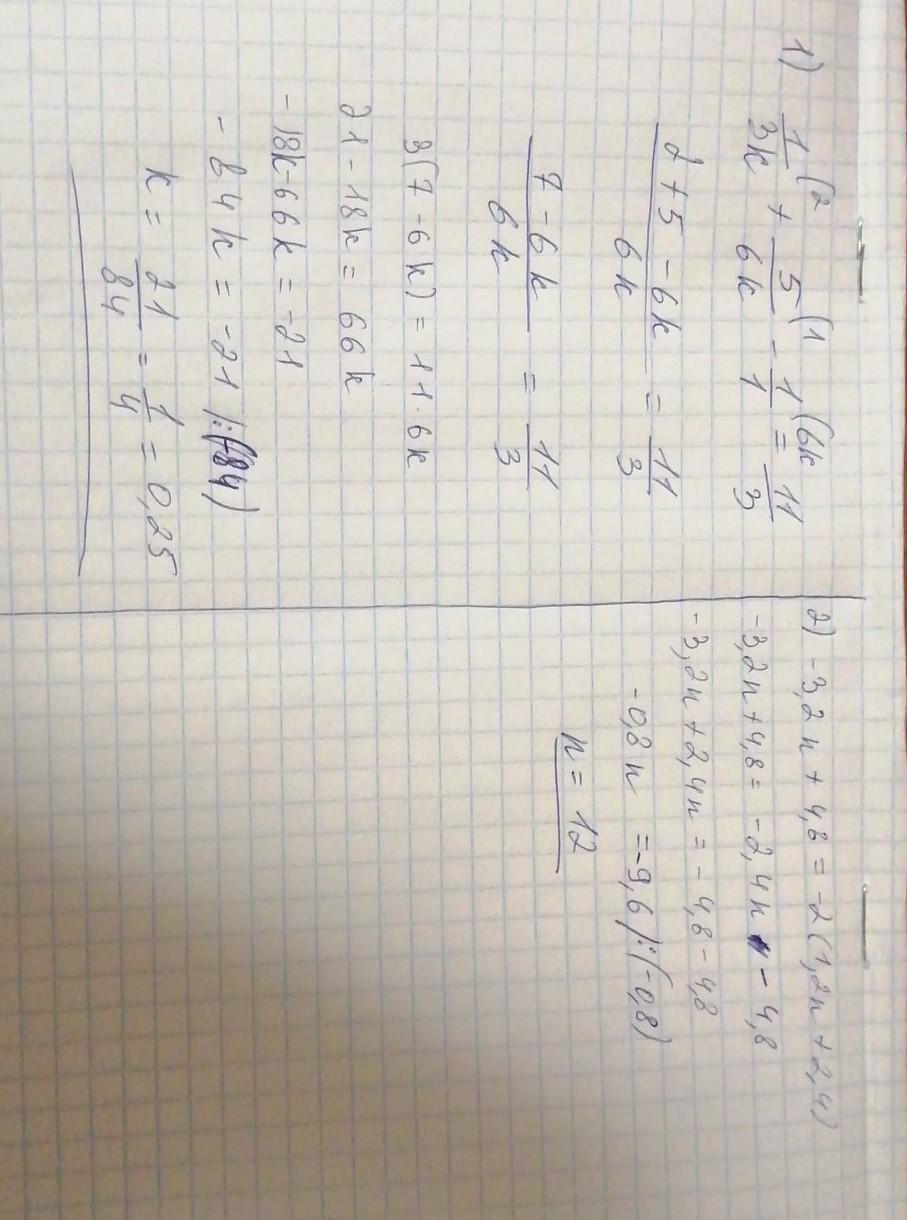 1) 1/3k (2 + 5/6k (1 - 1/1 (6k = 11/3
2+5-6k/6k = 11/3
7-6k/6k = 11/3
3(7-6k) = 11·6k
21-18k = 66k
-18k-66k = -21
-84k = -21 |:(-84)
k = 21/84 = 1/4 = 0,25
2) -3,2n + 4,8 = -2(1,2n + 2,4)
-3,2n+4,8 = -2,4n - 4,8
-3,2n+2,4n = -4,8-4,8
-0,8n = -9,6 |:(-0,8)
n = 12